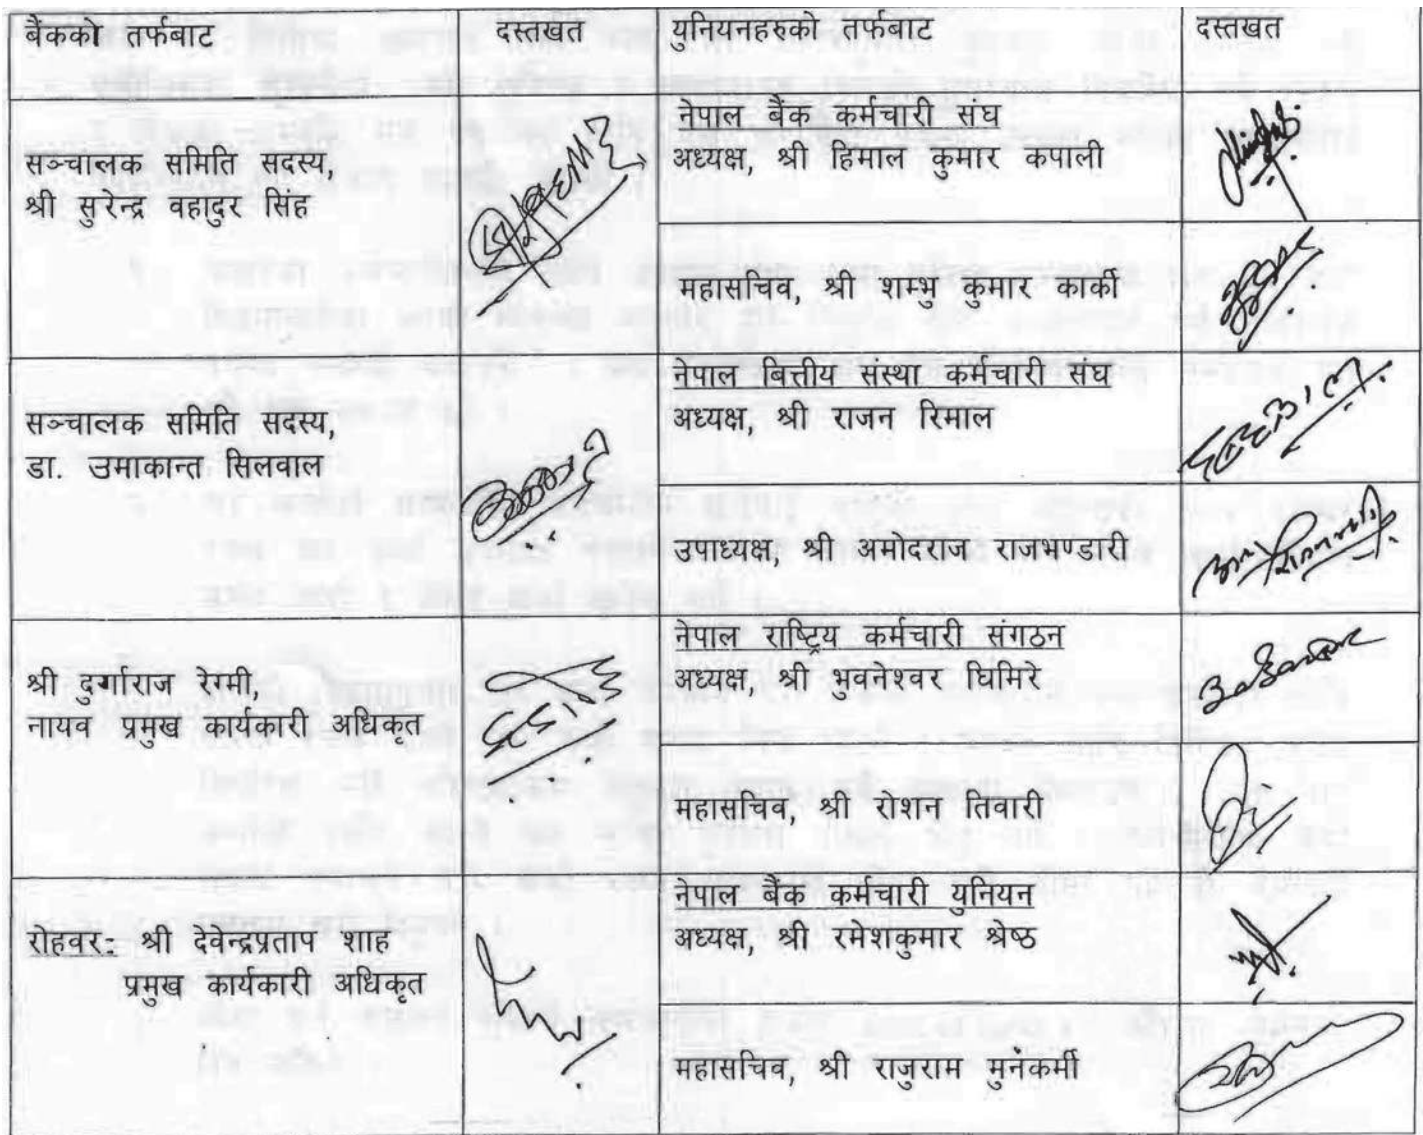 बैंकको तर्फबाट दस्तखत युनियनहरुको तर्फबाट दस्तखत
सञ्चालक समिति सदस्य,
श्री सुरेन्द्र वहादुर सिंह
नेपाल बैंक कर्मचारी संघ
अध्यक्ष, श्री हिमाल कुमार कपाली
महासचिव, श्री शम्भु कुमार कार्की
सञ्चालक समिति सदस्य,
डा. उमाकान्त सिलवाल
नेपाल बित्तीय संस्था कर्मचारी संघ
अध्यक्ष, श्री राजन रिमाल
उपाध्यक्ष, श्री अमोदराज राजभण्डारी
श्री दुर्गाराज रेग्मी,
नायव प्रमुख कार्यकारी अधिकृत
नेपाल राष्ट्रिय कर्मचारी संगठन
अध्यक्ष, श्री भुवनेश्वर घिमिरे
महासचिव, श्री रोशन तिवारी
रोहवरः श्री देवेन्द्रप्रताप शाह
प्रमुख कार्यकारी अधिकृत
नेपाल बैंक कर्मचारी युनियन
अध्यक्ष, श्री रमेशकुमार श्रेष्ठ
महासचिव, श्री राजुराम मुनंकर्मी